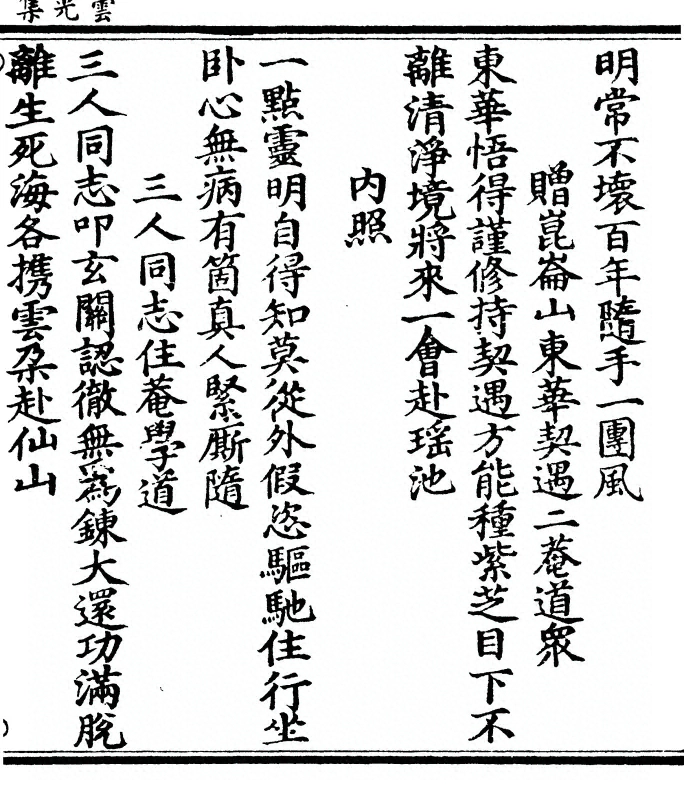 雲光集
明常不壞百年隨手一團風
贈崑崙山東華契遇二菴道衆
東華悟得謹修持契遇方能種紫芝目下不
離清淨境將來一會赴瑶池
内照
一點靈明自得知莫從外假恣驅馳住行坐
卧心無病有箇真人緊厮隨
三人同志住菴學道
三人同志叩玄關認徹無爲鍊大還功滿脫
離生死海各携雲朶赴仙山